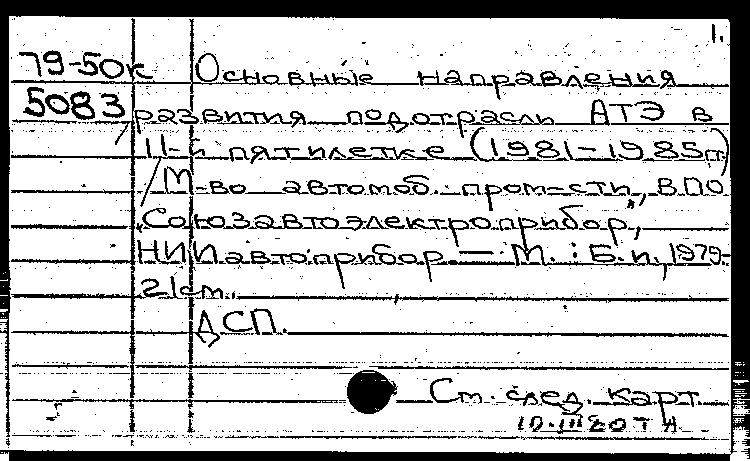 1.
79-50к Основные направления
5083 развития подотрасли АТЭ в
11-й пятилетке (1981-1985гг.)
/М-во автомоб. пром-сти, ВПО
"Союзавтоэлектроприбор",
НИИавтоприбор. — М. : Б.и., 1979-
21см.
ДСП.
См. след. карт
10.III80